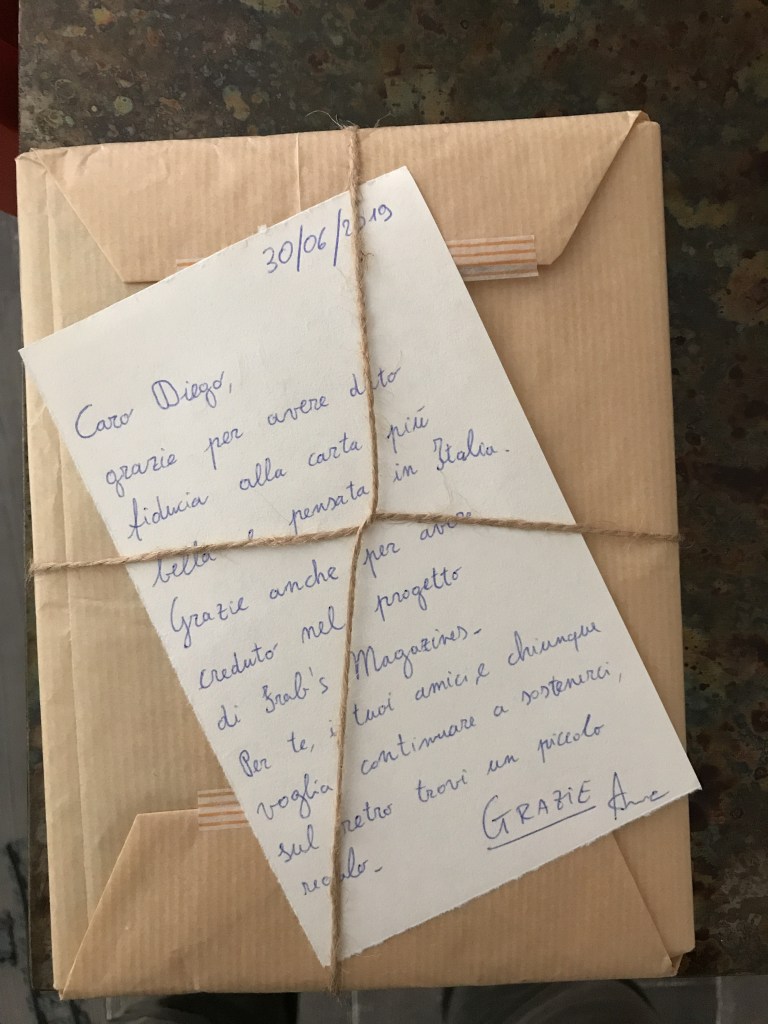 30/06/2019
Caro Diego,
grazie per avere dato
fiducia alla carta più
bella e pensata in Italia.
Grazie anche per avere
creduto nel progetto
di Frab's Magazines.
Per te, i tuoi amici e chiunque
voglia continuare a sostenerci,
sul retro trovi un piccolo
regalo.
GRAZIE